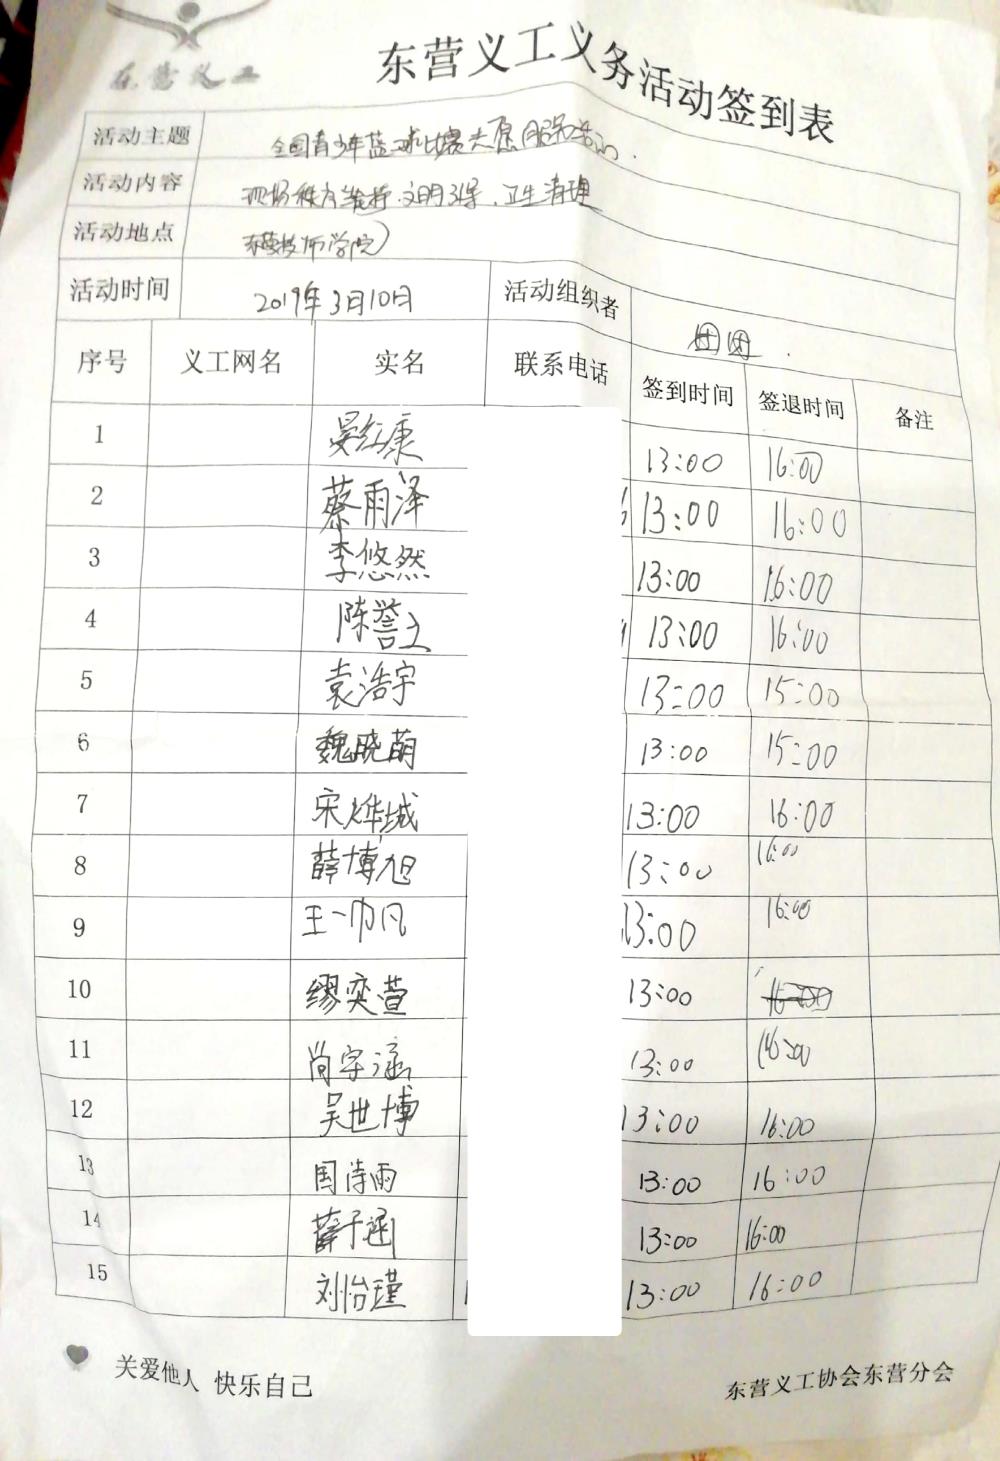 东营义工
东营义工义务活动签到表
活动主题 全国青少年篮球比赛志愿服务活动.
活动内容 现场秩序维持.文明引导.卫生清理
活动地点 东营技师学院)
活动时间 2019年3月10日 活动组织者 团团.
序号 义工网名 实名 联系电话 签到时间 签退时间 备注
1 晏红康 13:00 16:00
2 蔡雨泽 13:00 16:00
3 李悠然 13:00 16:00
4 陈誉文 13:00 16:00
5 袁浩宇 13:00 15:00
6 魏晓萌 13:00 15:00
7 宋烨城 13:00 16:00
8 薛博旭 13:00 16:00
9 王一帆 13:00 16:00
10 缪奕萱 13:00 16:00
11 尚宇涵 13:00 16:00
12 吴世博 13:00 16:00
13 国诗雨 13:00 16:00
14 薛子涵 13:00 16:00
15 刘怡瑾 13:00 16:00
关爱他人 快乐自己
东营义工协会东营分会